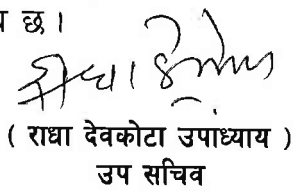 छ।
( राधा देवकोटा उपाध्याय )
उप सचिव